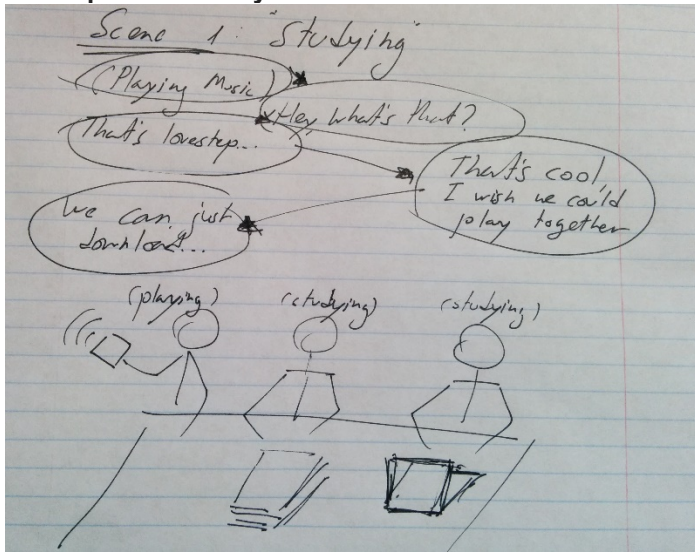 Scene 1: "Studying"
(Playing Music)
Hey what's that?
That's lovestep...
That's cool,
I wish we could
play together
We can just
download...
(playing) (studying) (studying)